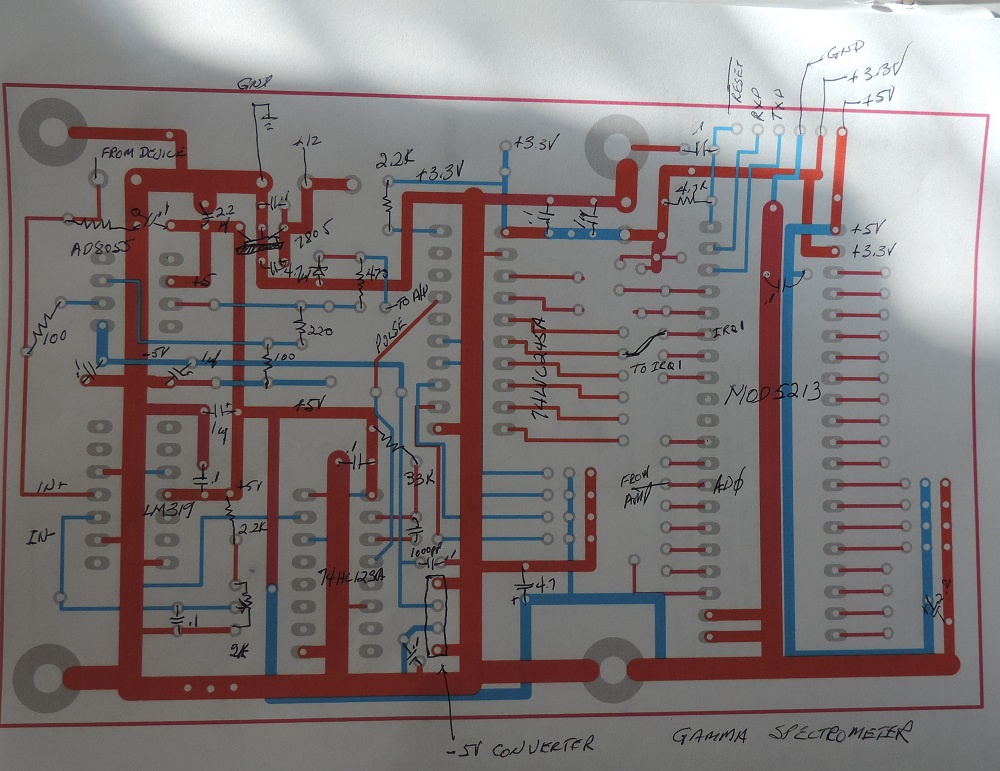 GND
RESET
RXD
TXD
GND
+3.3V
+5V
FROM DEVICE
+12
2.2K
+3.3V
+3.3V
.1
4.7K
2.2
.1
.1
.1
AD8055
7805
+5V
+3.3V
+5
4.7
470
TO A/D
.1
100
220
PULSE
74HC245A
IRQ1
TO IRQ1
-5V
100
.1
MOD5213
+5V
1µ
33K
.1
.1
FROM
AD0
IN+
+5V
LM319
2.2K
IN-
1000PF
.1
74HC123A
4.7
.1
2K
-5V CONVERTER
GAMMA SPECTROMETER